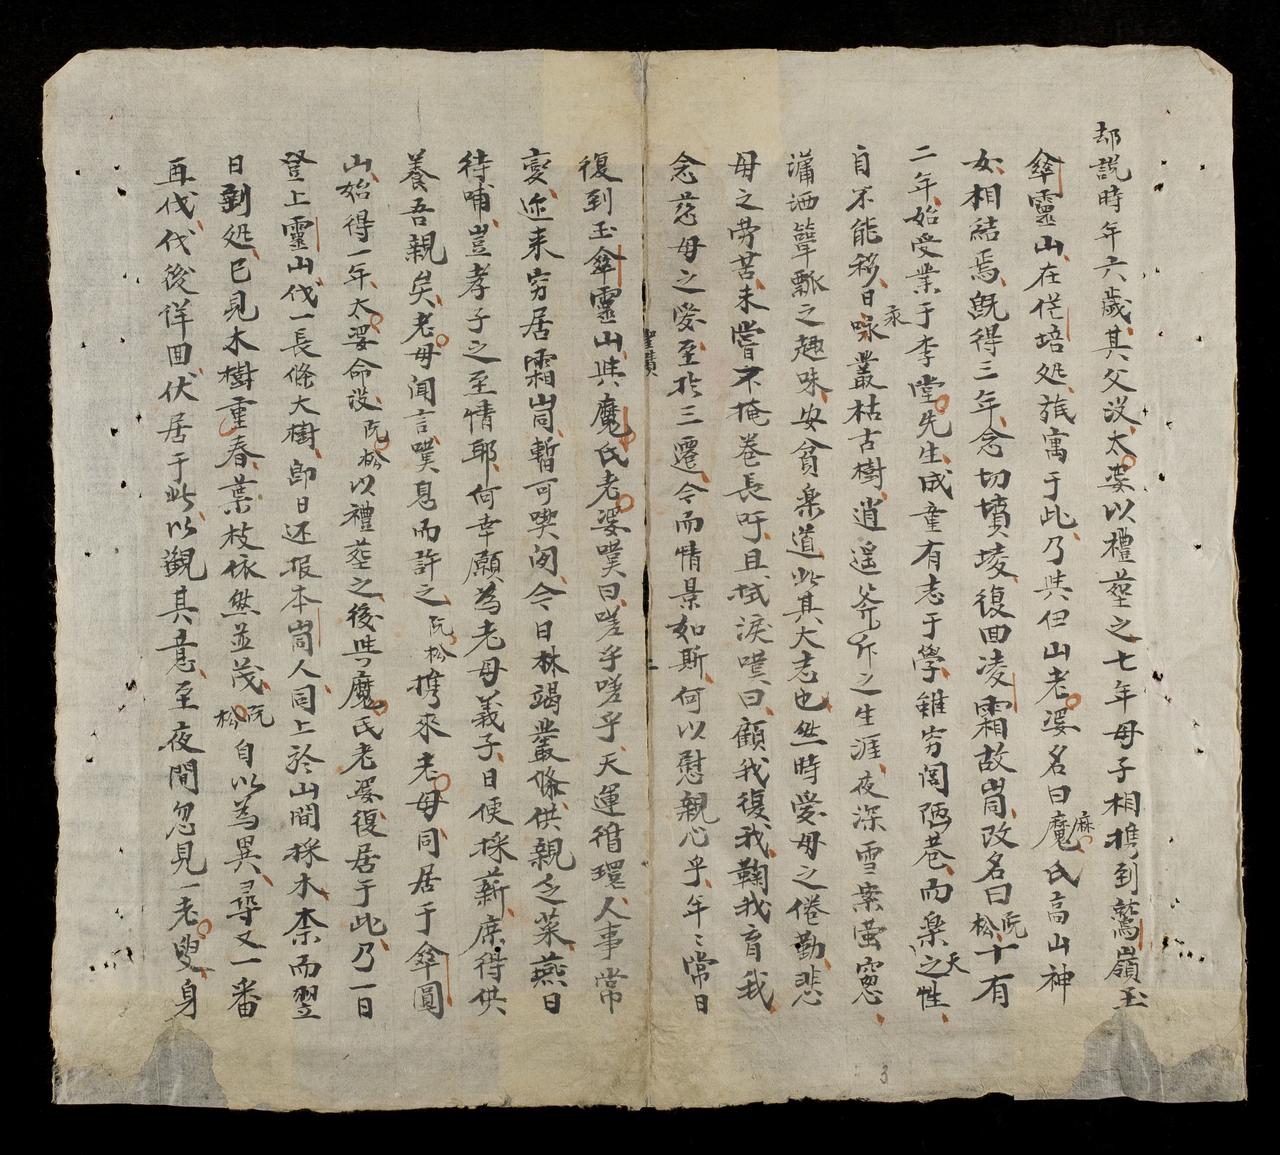 却說時年六歲其父没太婆以禮塟之七年母子相携到鷲嶺玉
傘靈山在伐培処旅寓于此乃與但山老婆名曰魔氏高山神
麻
女相結焉旣得三年念切墳堎復回凌霜故峝改名曰阮松十有
二年始受業于李堂先生成童有志于學雖穷閭陋巷而楽之性
天
自不能移日咏叢枯古樹逍遥斧斤之生涯夜深雪案萤窓
瀟洒簞瓢之趣味安貧楽道此其大志也然時愛母之倦勤悲
母之劳苦未嘗不掩卷長吁且拭淚嘆曰顧我復我鞠我育我
念慈母之愛至於三遷今而情景如斯何以慰親心乎年〻常日
聖蹟
復到玉傘靈山與魔氏老婆嘆曰嗟乎嗟乎天運循環人事常
變迩来穷居霜峝暫可喫閔今日林竭叢條供親乏菜燕日
待哺豈孝子之至情耶何幸願為老母義子日便採薪庶得供
養吾親矣老母闻言嘆息而許之阮松携來老母同居于傘圓
山始得一年太婆命没阮松以禮塟之後與魔氏老婆復居于此乃一日
登上靈山伐一長條大樹即日还报本峝人同上於山間採木柰而翌
日到処已見木樹重春葉枝依然並茂阮松自以為異尋又一番
再伐伐後佯回伏居于此以觀其意至夜間忽見一老叟身
3